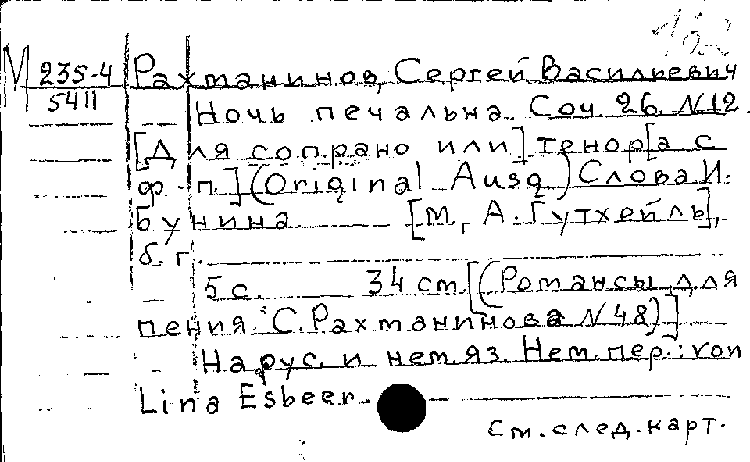 М 235-4 Рахманинов, Сергей Василиевич
5411 Ночь печальна. Соч. 26. N12.
[Для сопрано или] тенор[а с
ф.-п.] (Original Ausg.) Слова И.
Бунина [М., А. Гутхейль],
б.г.
5 с. 34 cm. [(Романсы для
пения С. Рахманинова N48)]
На рус. и нем. яз. Нем. пер.: von
Lina Esbeer.
См. след. карт.